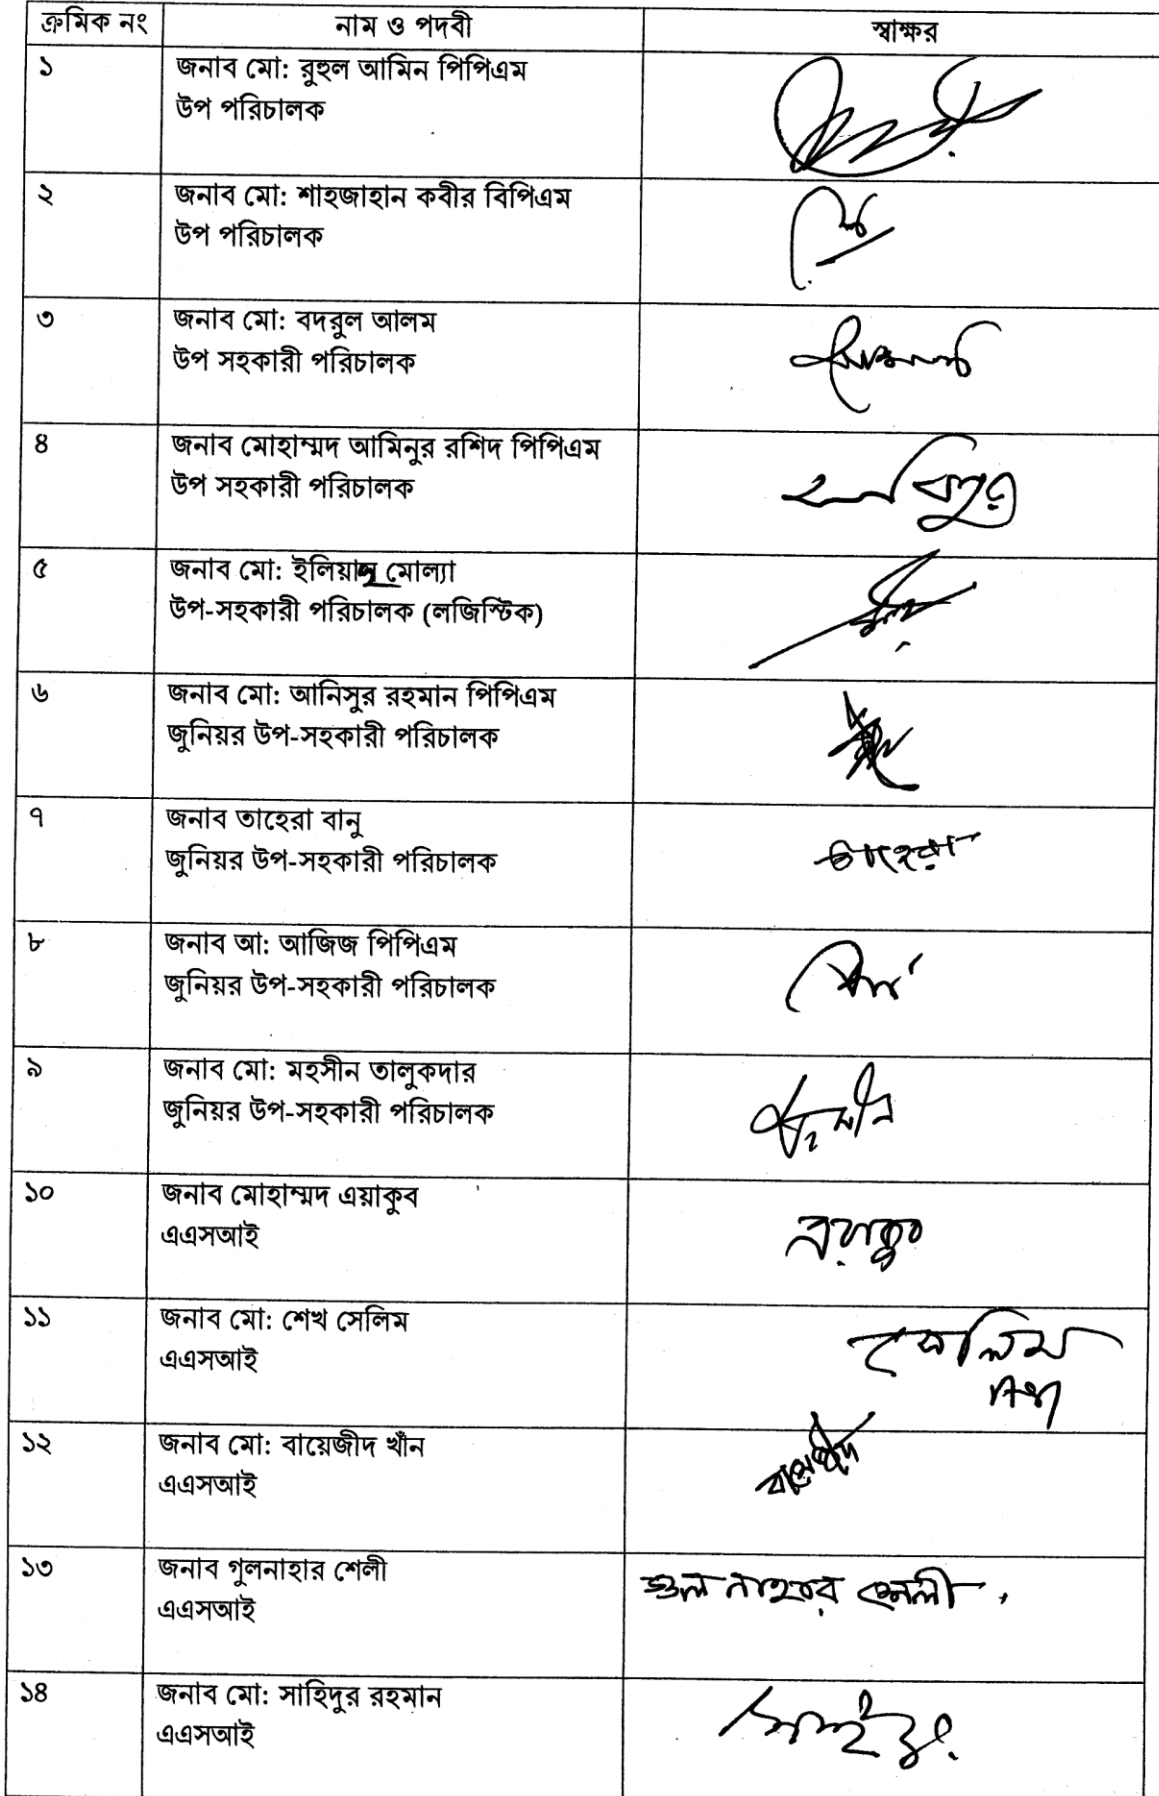 ক্রমিক নং নাম ও পদবী স্বাক্ষর
১ জনাব মো: রুহুল আমিন পিপিএম
উপ পরিচালক
২ জনাব মো: শাহজাহান কবীর বিপিএম
উপ পরিচালক
৩ জনাব মো: বদরুল আলম
উপ সহকারী পরিচালক
৪ জনাব মোহাম্মদ আমিনুর রশিদ পিপিএম
উপ সহকারী পরিচালক
৫ জনাব মো: ইলিয়াস মোল্যা
উপ-সহকারী পরিচালক (লজিস্টিক)
৬ জনাব মো: আনিসুর রহমান পিপিএম
জুনিয়র উপ-সহকারী পরিচালক
৭ জনাব তাহেরা বানু
জুনিয়র উপ-সহকারী পরিচালক তাহেরা
৮ জনাব আ: আজিজ পিপিএম
জুনিয়র উপ-সহকারী পরিচালক
৯ জনাব মো: মহসীন তালুকদার
জুনিয়র উপ-সহকারী পরিচালক
১০ জনাব মোহাম্মদ এয়াকুব
এএসআই এয়াকুব
১১ জনাব মো: শেখ সেলিম
এএসআই সেলিম
১২ জনাব মো: বায়েজীদ খাঁন
এএসআই বায়েজীদ
১৩ জনাব গুলনাহার শেলী গুল নাহার শেলী
এএসআই
১৪ জনাব মো: সাহিদুর রহমান
এএসআই